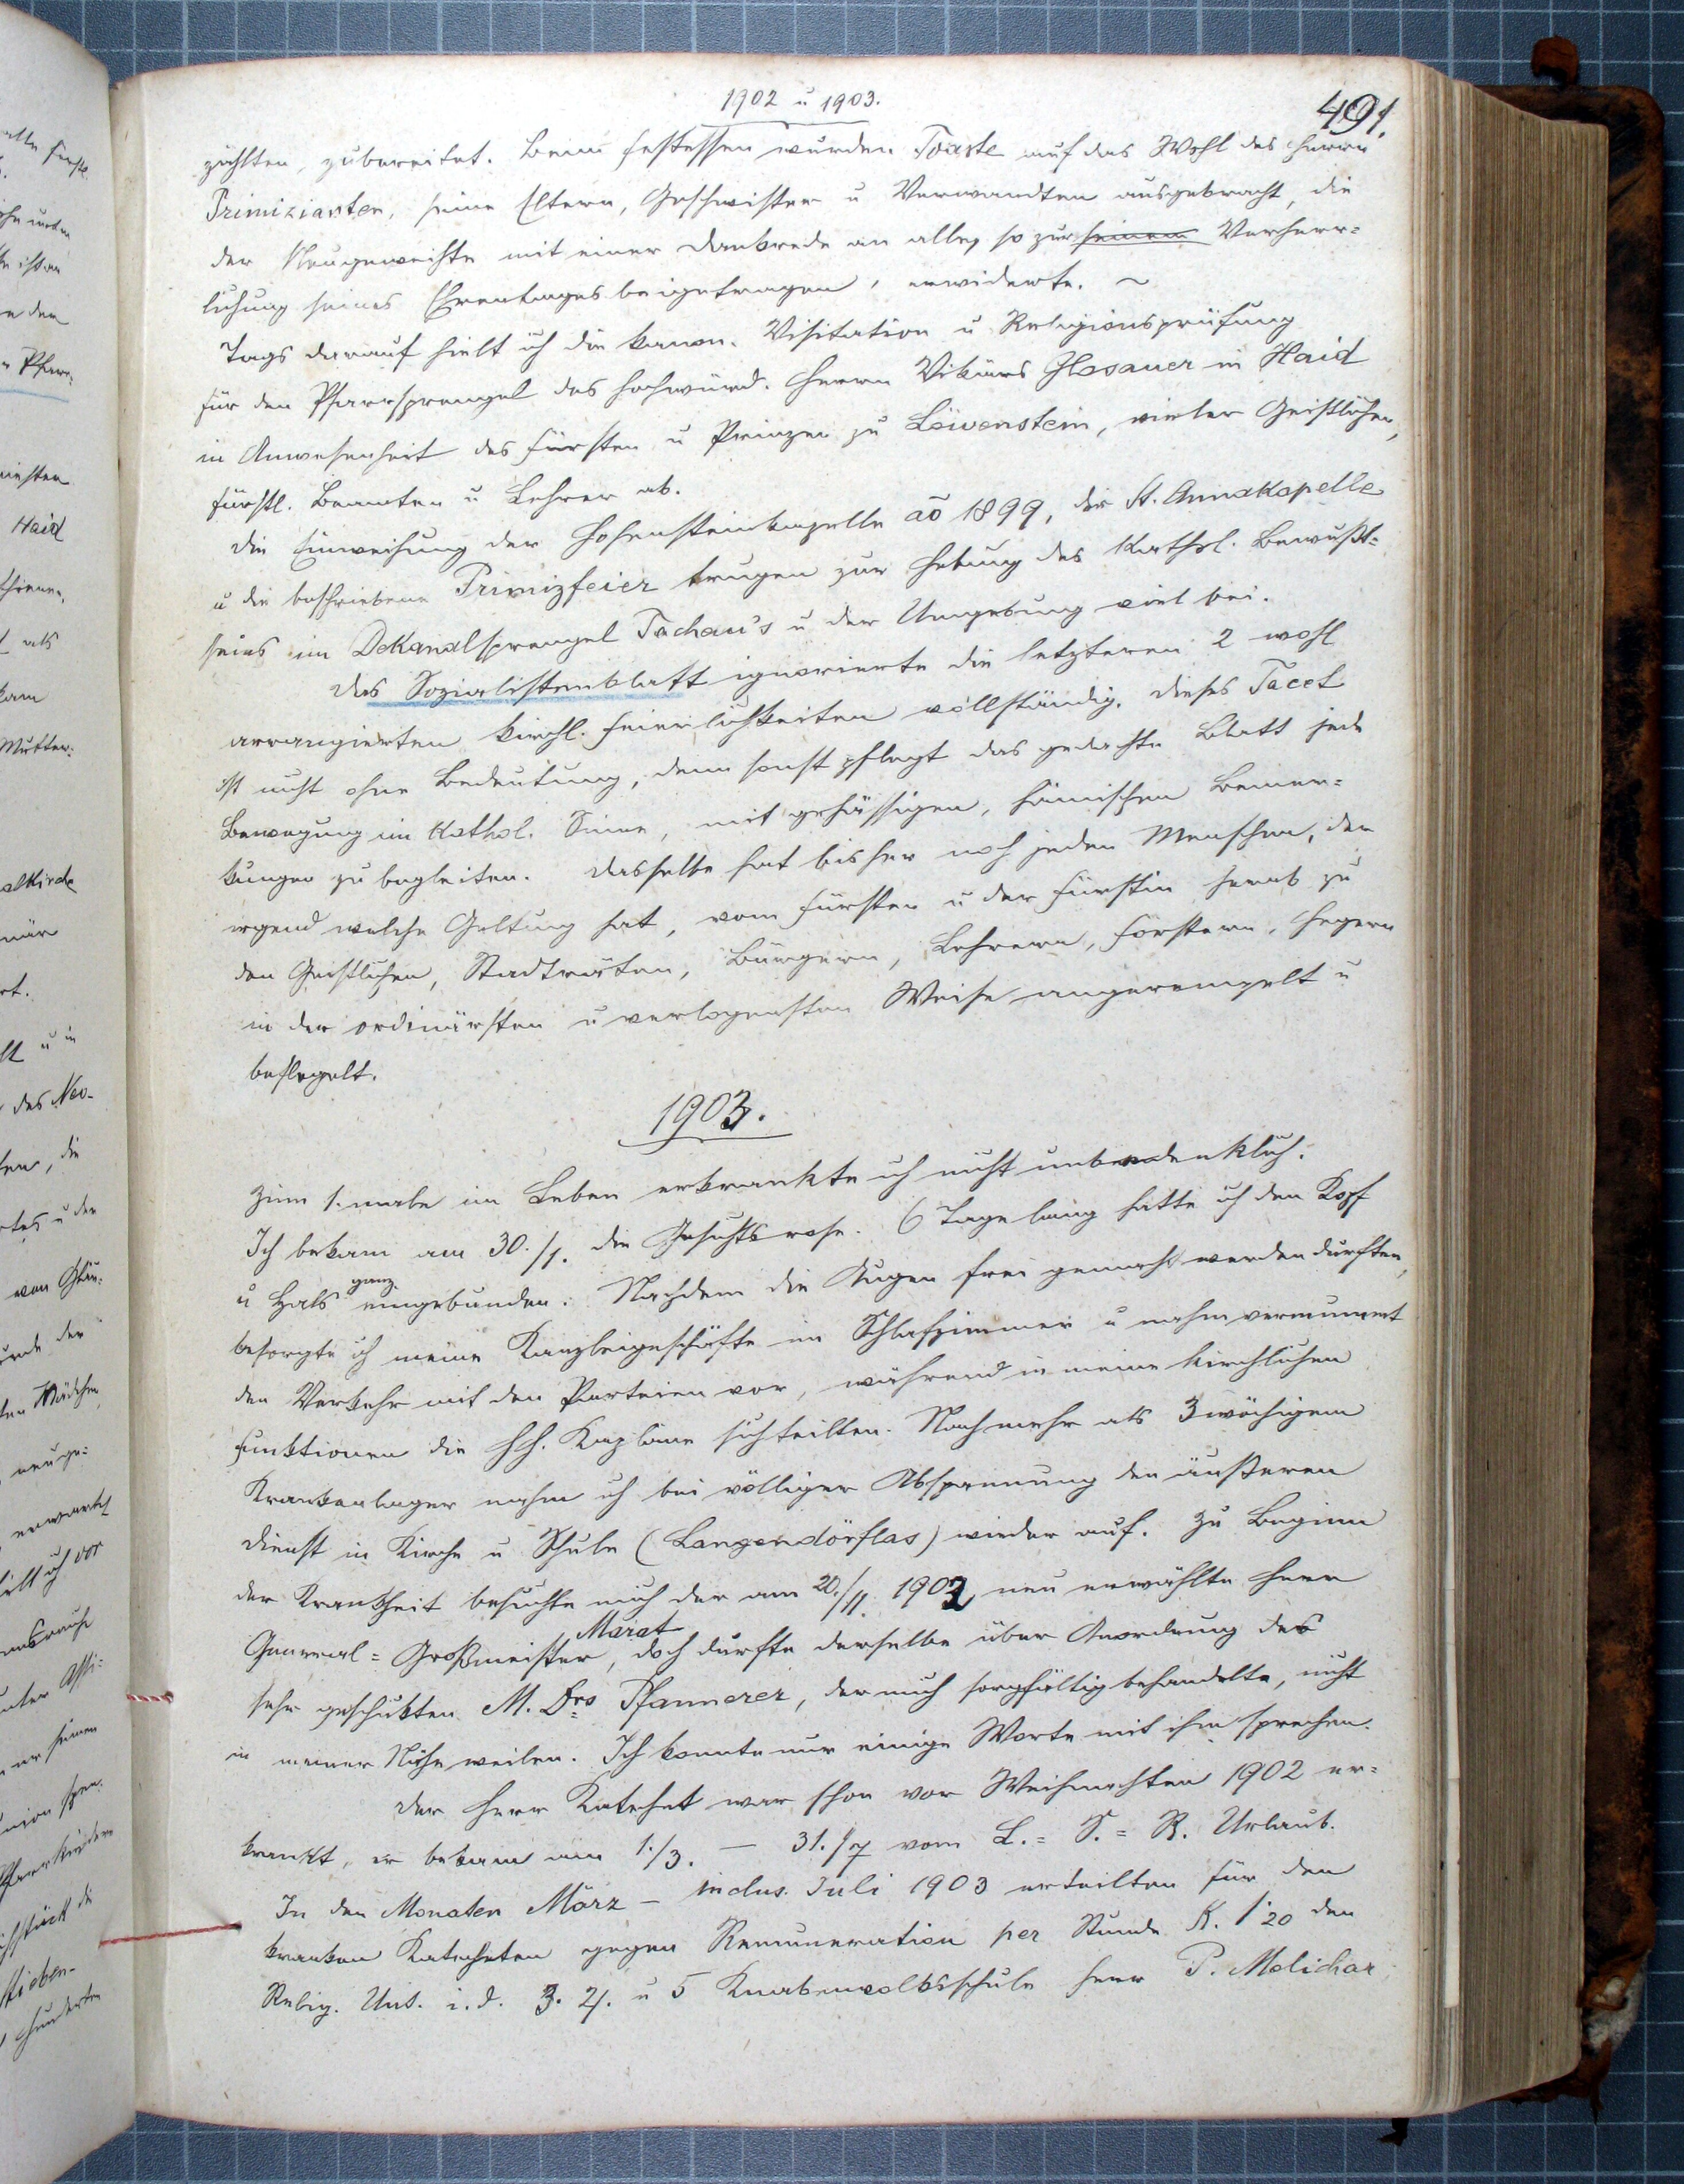 1902 u 1903.
491.
zählten, zubereitet. Beim Festessen wurden Toaste auf das Wohl des Herrn
Primizianten, seine Eltern, Geschwister u Verwandten ausgebracht, die
der Neugeweihte mit einer Dankrede an alle, so zur seinem Verherr=
lichung seines Ehrentages beigetragen, erwiderte. ~
Tags darauf hielt ich die kanon. Visitation u Religionsprüfung
für den Pfarrsprengel des hochwürd. Herrn Vikärs Hosauer in Haid
in Anwesenheit des Fürsten u Prinzen zu Löwenstein, vieler Geistlichen,
fürstl. Beamten u Lehrer ab.
Die Einweihung der Hohensteinkapelle ao 1899, der St. Annakapelle
u die beschriebene Primizfeier trugen zur Hebung des Kathol. Bewußt=
seins im Dekanalsprengel Tachau's u der Umgebung viel bei.
Das Sozialistenblatt ignorierte die letzteren 2 wohl
arrangierten kirchl. Feierlichkeiten vollständig. Dieses Tacet
ist nicht ohne Bedeutung, denn sonst pflegt das gedachte Blatt jede
Bewegung im Kathol. Sinne, mit gehässigen, hämischen Bemer=
kungen zu begleiten. Dasselbe hat bisher noch jeden Menschen, der
irgend welche Geltung hat, vom Fürsten u der Fürstin herab zu
den Geistlichen, Stadträten, Bürgern, Lehrern, Förstern, Hegern
in der ordinärsten u verlogensten Weise angerempelt u
beflegelt.
1903.
Zum 1. male im Leben erkrankte ich nicht unbedenklich.
Ich bekam am 30./1. die Gesichtsrose. 6 Tage lang hatte ich den Kopf
u Hals ganz eingebunden. Nachdem die Augen frei gemacht werden durften,
besorgte ich meine Kanzleigeschäfte im Schlafzimmer u nahm vermummt
den Verkehr mit den Parteien vor, während in meine kirchlichen
Funktionen die HH. Kapläne sich teilten. Nach mehr als 3 wöchigem
Krankenlager nahm ich bei völliger Abspannung den äußeren
Dienst in Kirche u Schule (Langendörflas) wieder auf. Zu Beginn
der Krankheit besuchte mich der am 20./11. 1902 neu erwählte Herr
General=Großmeister Marat, doch durfte derselbe über Anordnung des
sehr geschickten M. Drs Pfannerer, der mich sorgfältig behandelte, nicht
in meiner Nähe weilen. Ich konnte nur einige Worte mit ihm sprechen.
Der Herr Katechet war schon vor Weihnachten 1902 er=
krankt, er bekam vom 1./3. – 31./7 vom L.=S.=R. Urlaub.
In den Monaten März – inclus. Juli 1903 erteilten für den
kranken Katecheten gegen Remuneration per Stunde K. 1·20 den
Relig. Unt. i. d. 3. 4. u 5 Knabenvolksschule Herr P. Melichar